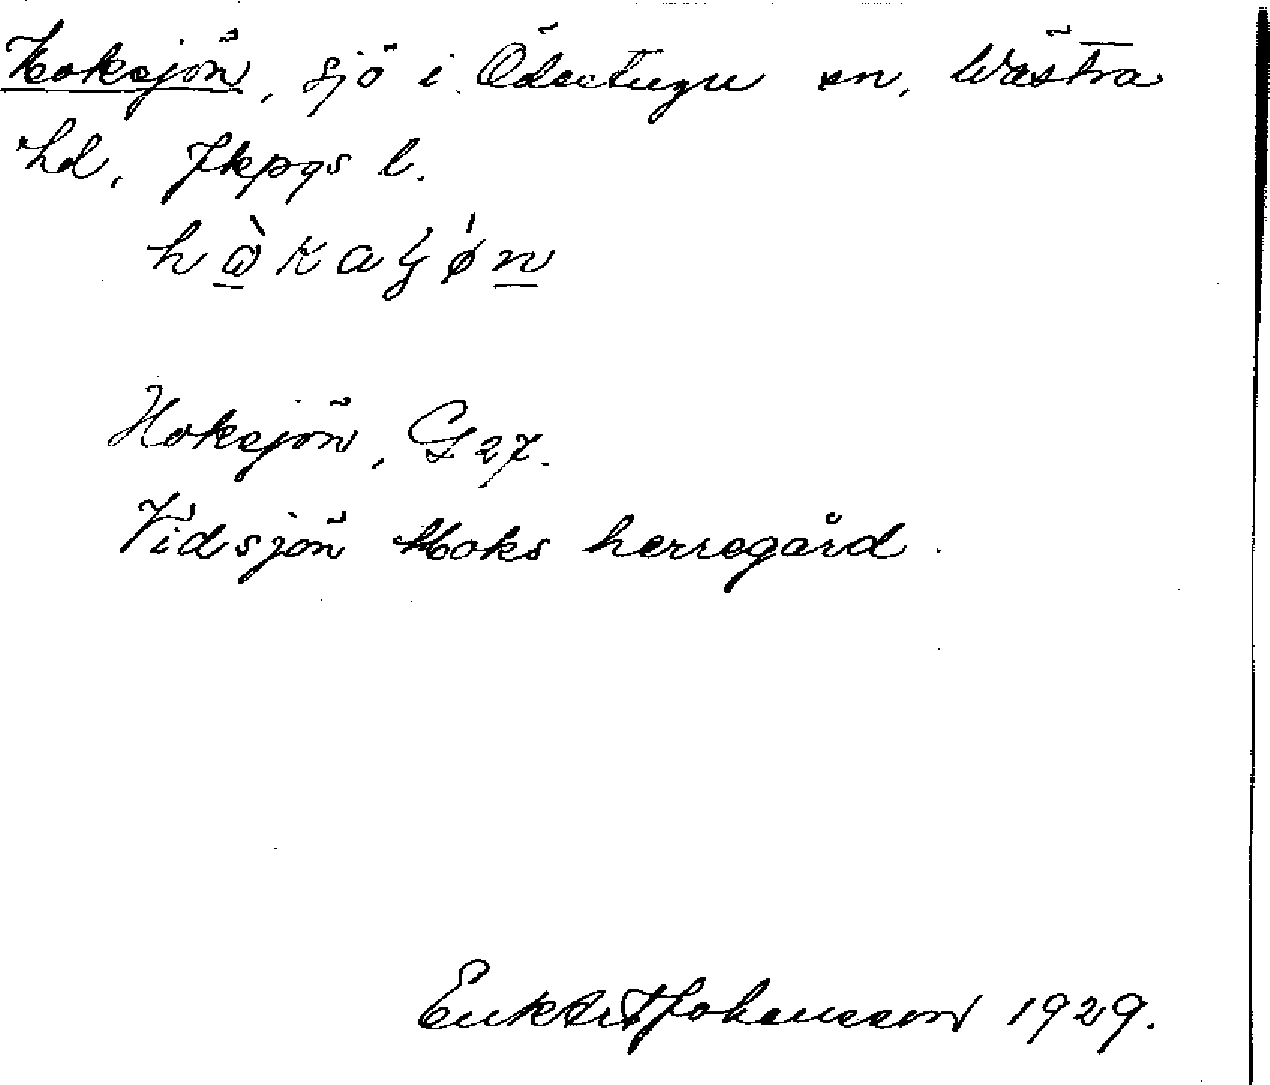 Hoksjön, sjö i Ödestugu sn, Västra
hd, Jkpgs l.
hὼkaʃǿn
Hoksjön, G 27.
Vid sjön Hoks herregård.
Johansson 1929.